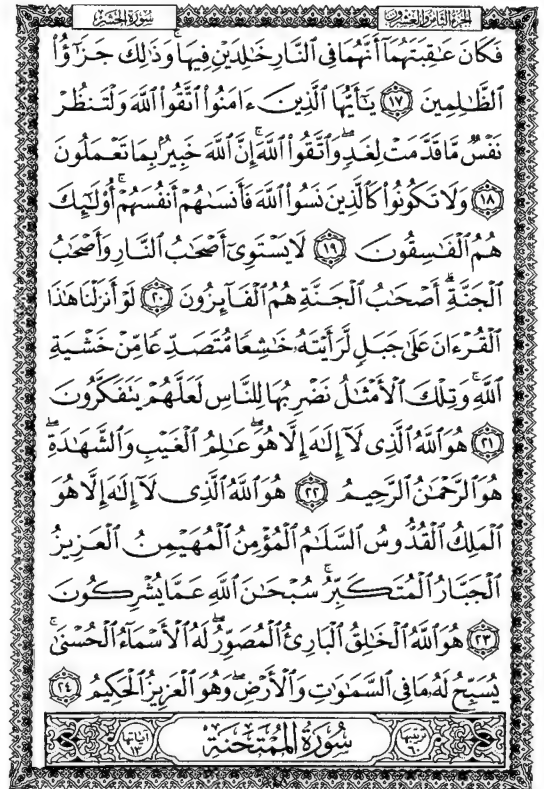 الجزء الثامن والعشرون سورة الحشر
فَكَانَ عَٰقِبَتَهُمَآ أَنَّهُمَا فِى ٱلنَّارِ خَٰلِدَيْنِ فِيهَاۚ وَذَٰلِكَ جَزَٰٓؤُا۟
ٱلظَّٰلِمِينَ ١٧ يَٰٓأَيُّهَا ٱلَّذِينَ ءَامَنُوا۟ ٱتَّقُوا۟ ٱللَّهَ وَلْتَنظُرْ
نَفْسٌ مَّا قَدَّمَتْ لِغَدٍۖ وَٱتَّقُوا۟ ٱللَّهَۚ إِنَّ ٱللَّهَ خَبِيرٌۢ بِمَا تَعْمَلُونَ
١٨ وَلَا تَكُونُوا۟ كَٱلَّذِينَ نَسُوا۟ ٱللَّهَ فَأَنسَىٰهُمْ أَنفُسَهُمْۚ أُو۟لَٰٓئِكَ
هُمُ ٱلْفَٰسِقُونَ ١٩ لَا يَسْتَوِىٓ أَصْحَٰبُ ٱلنَّارِ وَأَصْحَٰبُ
ٱلْجَنَّةِۚ أَصْحَٰبُ ٱلْجَنَّةِ هُمُ ٱلْفَآئِزُونَ ٢٠ لَوْ أَنزَلْنَا هَٰذَا
ٱلْقُرْءَانَ عَلَىٰ جَبَلٍ لَّرَأَيْتَهُۥ خَٰشِعًا مُّتَصَدِّعًا مِّنْ خَشْيَةِ
ٱللَّهِۚ وَتِلْكَ ٱلْأَمْثَٰلُ نَضْرِبُهَا لِلنَّاسِ لَعَلَّهُمْ يَتَفَكَّرُونَ
٢١ هُوَ ٱللَّهُ ٱلَّذِى لَآ إِلَٰهَ إِلَّا هُوَۖ عَٰلِمُ ٱلْغَيْبِ وَٱلشَّهَٰدَةِۖ
هُوَ ٱلرَّحْمَٰنُ ٱلرَّحِيمُ ٢٢ هُوَ ٱللَّهُ ٱلَّذِى لَآ إِلَٰهَ إِلَّا هُوَ
ٱلْمَلِكُ ٱلْقُدُّوسُ ٱلسَّلَٰمُ ٱلْمُؤْمِنُ ٱلْمُهَيْمِنُ ٱلْعَزِيزُ
ٱلْجَبَّارُ ٱلْمُتَكَبِّرُۚ سُبْحَٰنَ ٱللَّهِ عَمَّا يُشْرِكُونَ
٢٣ هُوَ ٱللَّهُ ٱلْخَٰلِقُ ٱلْبَارِئُ ٱلْمُصَوِّرُۖ لَهُ ٱلْأَسْمَآءُ ٱلْحُسْنَىٰۚ
يُسَبِّحُ لَهُۥ مَا فِى ٱلسَّمَٰوَٰتِ وَٱلْأَرْضِۖ وَهُوَ ٱلْعَزِيزُ ٱلْحَكِيمُ ٢٤
ترتيبها ٦٠ سُورَةُ المُمْتَحنَة آياتها ١٣